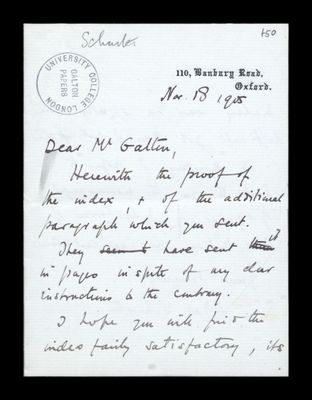 150
Schuster
UNIVERSITY COLLEGE LONDON
GALTON
PAPERS
110, Banbury Road,
Oxford.
Nov. 18 1905
Dear Mr Galton,
Herewith the proof of
the index, & of the additional
paragraph which you sent.
They seem to have sent them it
in pages in spite of my clear
instructions to the contrary.
I hope you will find the
index fairly satisfactory, its